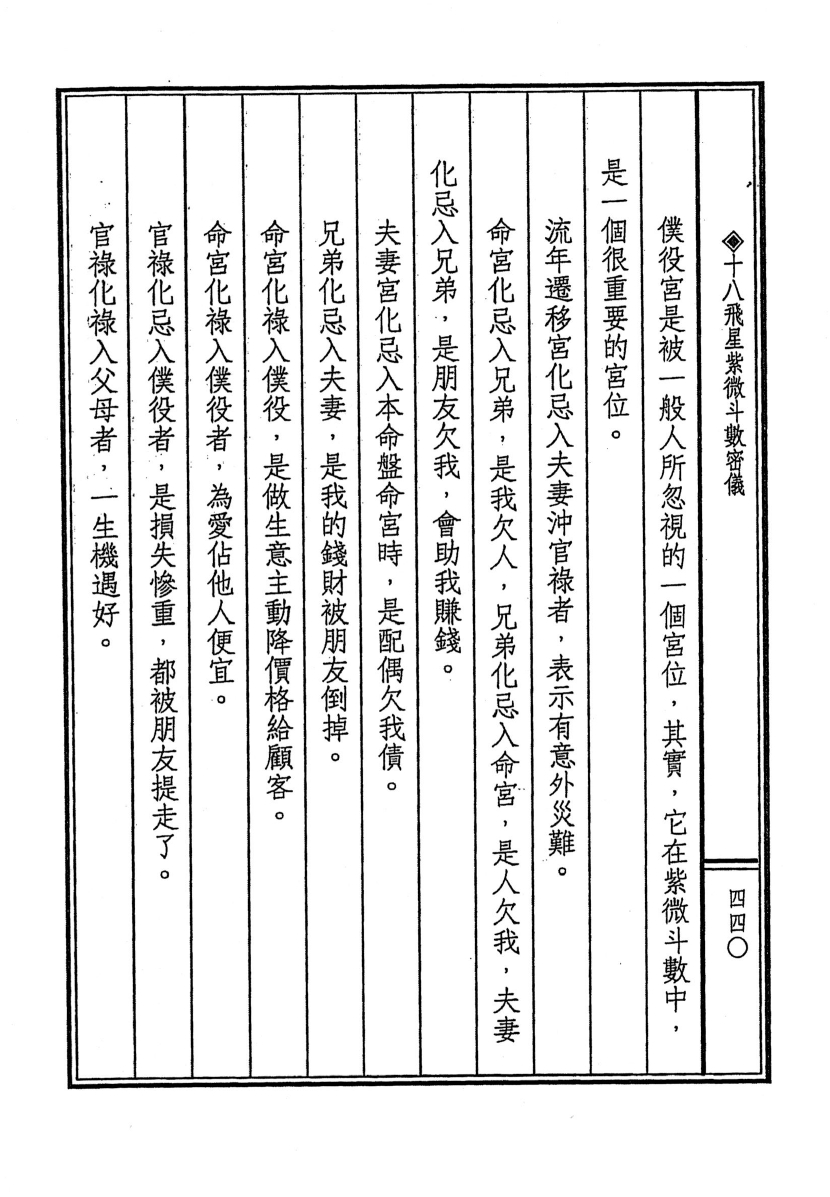 ◈十八飛星紫微斗數密儀
四四〇
僕役宮是被一般人所忽視的一個宮位，其實，它在紫微斗數中，
是一個很重要的宮位。
流年遷移宮化忌入夫妻沖官祿者，表示有意外災難。
命宮化忌入兄弟，是我欠人，兄弟化忌入命宮，是人欠我，夫妻
化忌入兄弟，是朋友欠我，會助我賺錢。
夫妻宮化忌入本命盤命宮時，是配偶欠我債。
兄弟化忌入夫妻，是我的錢財被朋友倒掉。
命宮化祿入僕役，是做生意主動降價格給顧客。
命宮化祿入僕役者，為愛佔他人便宜。
官祿化忌入僕役者，是損失慘重，都被朋友提走了。
官祿化祿入父母者，一生機遇好。